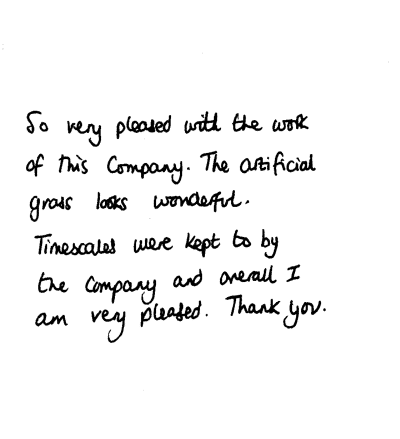 So very pleased with the work
of this Company. The artificial
grass looks wonderful.
Timescales were kept to by
the Company and overall I
am very pleased. Thank you.